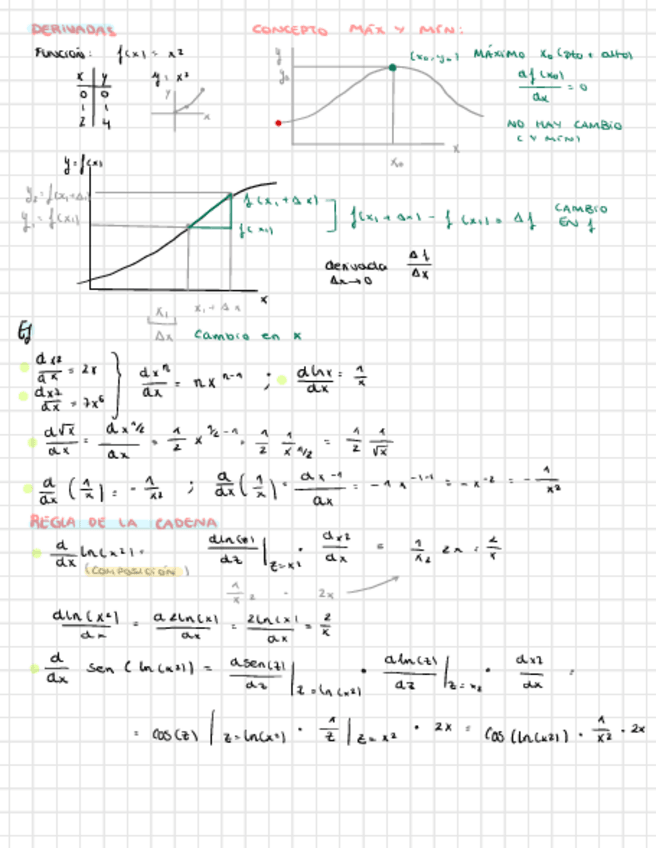 DERIVADAS
CONCEPTO MÁX Y MÍN:
FUNCIÓN: f(x) = x²
x | y
0 | 0
1 | 1
2 | 4
y = x²
y
x
y
y₀
(x₀, y₀)
x₀
x
MÁXIMO x₀ (pto + alto)
df(x₀)/dx = 0
NO HAY CAMBIO
(Y MÍN)
y = f(x)
y₂ = f(x₁+Δx)
y₁ = f(x₁)
f(x₁+Δx)
f(x₁)
f(x₁+Δx) - f(x₁) = Δf CAMBIO EN f
derivada Δf/Δx
Δx→0
x₁ x₁+Δx x
Δx Cambio en x
Ej
dx²/dx = 2x
dx⁷/dx = 7x⁶
dxⁿ/dx = nxⁿ⁻¹ ; dlnx/dx = 1/x
d√x/dx = dx^1/2/dx = 1/2 x^1/2-1 = 1/2 1/x^1/2 = 1/2 1/√x
d/dx (1/x) = -1/x² ; d/dx (1/x) = dx⁻¹/dx = -1x⁻¹⁻¹ = -x⁻² = -1/x²
REGLA DE LA CADENA
d/dx ln(x²) = dln(z)/dz |z=x² · dx²/dx = 1/x² 2x = 2/x
(COMPOSICIÓN)
1/x² · 2x
dln(x²)/dx = d2ln(x)/dx = 2ln(x)/dx = 2/x
d/dx sen(ln(x²)) = dsen(z)/dz |z=ln(x²) · dln(z)/dz |z=x² · dx²/dx =
= cos(z) |z=ln(x²) · 1/z |z=x² · 2x = cos(ln(x²)) · 1/x² · 2x